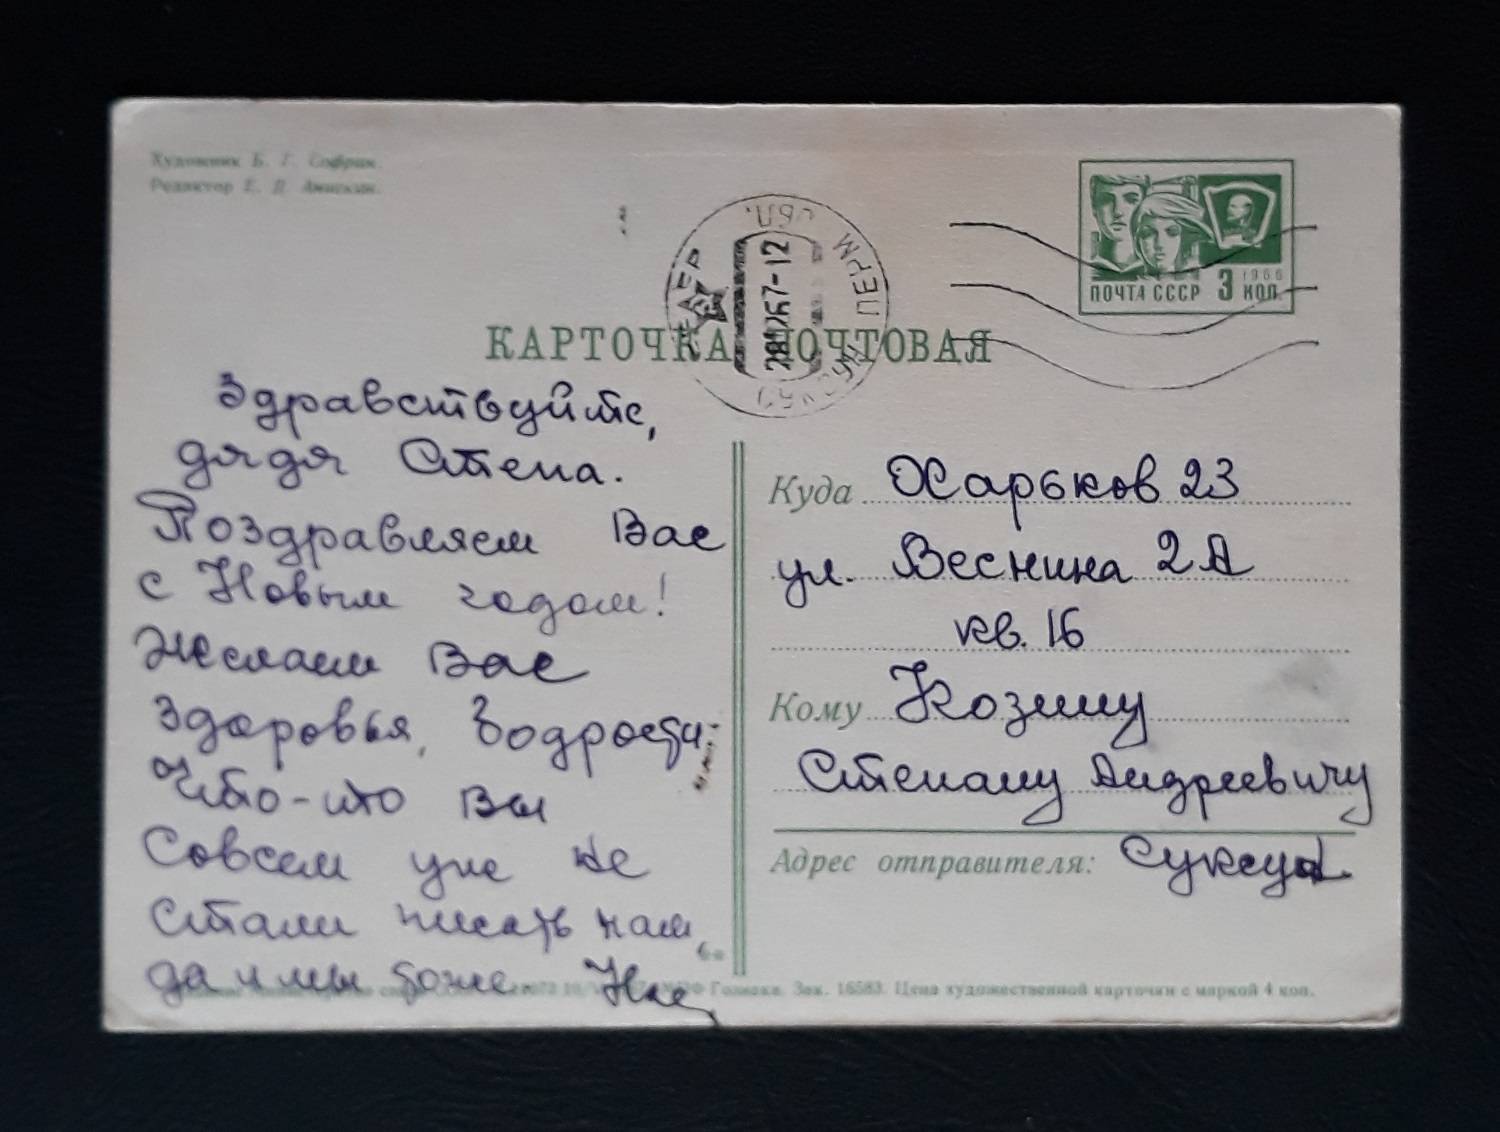 Художник Б. Г. Софрин.
Редактор Е. Д.
ПОЧТА СССР 3 КОП. 1966
ПЕРМ ОБЛ.
КАРТОЧКА ПОЧТОВАЯ
Здравствуйте,
дядя Степа.
Поздравляем Вас
с Новым годом!
Желаем Вас
Здоровья, бодрости.
Что-то Вы
Совсем уже не
стали писать нам,
да и мы тоже.
Куда Харьков 23
ул. Веснина 2А
кв. 16
Кому Козину
Степану Андреевичу
Адрес отправителя: Суксун
Гознака. Зак. 16583. Цена художественной карточки с маркой 4 коп.